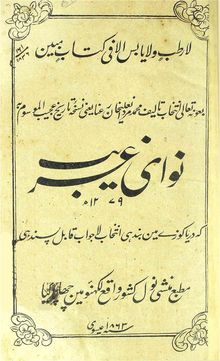 لا رطب ولا یابس الا فی کتاب مبین
بعونہ تعالیٰ انتخاب تالیف محمد مردیعلیخان رعنا یعنی نسخہ تاریخ عجیب الموسوم بہ
نوای غریب
۱۲۷۹
کہ دریا کوزے مین بند ہی انتخاب لاجواب قابل پسند ہی
مطبع منشی نول کشور واقع لکھنؤ مین چھاپا گیا
۱۸۶۳ عیسوی